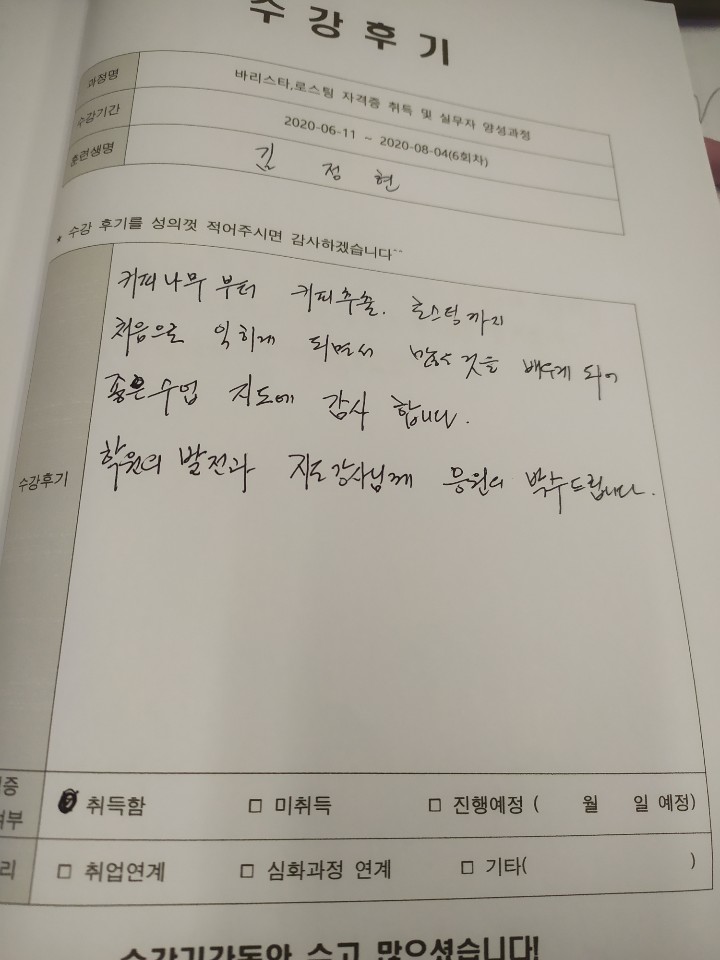 수강후기
과정명 바리스타,로스팅 자격증 취득 및 실무자 양성과정
수강기간 2020-06-11 ~ 2020-08-04(6회차)
훈련생명 김 정 현
* 수강 후기를 성의껏 적어주시면 감사하겠습니다^^
커피나무 부터 커피추출. 로스팅까지
처음으로 익히게 되면서 많은 것을 배우게 되어
좋은 수업 지도에 감사 합니다.
수강후기 학원의 발전과 지도강사님께 응원의 박수드립니다.
증
여부 취득함 □ 미취득 □ 진행예정 ( 월 일 예정)
리 □ 취업연계 □ 심화과정 연계 □ 기타( )
수강기간동안 수고 많으셨습니다!